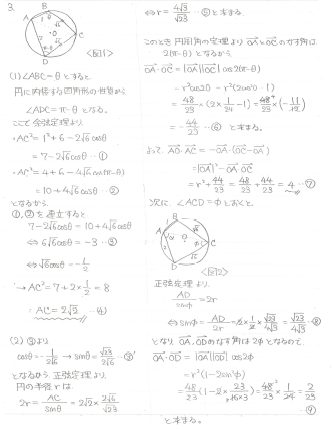 3.
B
A
C
D
<図1>
(1) ∠ABC=θとすると
円に内接する四角形の性質から
∠ADC=π-θ となる。
ここで余弦定理より
・AC²=1²+6-2√6cosθ
=7-2√6cosθ …①
・AC²=4+6-4√6cos(π-θ)
=10+4√6cosθ …②
となるから
①,②を連立すると
7-2√6cosθ=10+4√6cosθ
⇔ 6√6cosθ=-3 …③
⇔ √6cosθ=-1/2
∴ AC²=7+2×1/2=8
∴ AC=2√2 …④
(2) ③より
cosθ=-1/2√6 → sinθ=√23/2√6 …③'
となるから、正弦定理より
円の半径rは
2r=AC/sinθ=2√2×2√6/√23
⇔ r=4√3/√23 …⑤ と求まる。
このとき円周角の定理よりOAとOCのなす角は
2(π-θ)となるから
OA・OC=|OA||OC|cos2(π-θ)
=r²cos2θ=r²(2cos²θ-1)
=48/23×(2×1/24-1)=48/23×(-11/12)
=-44/23 …⑥ と求まる。
よって AO・AC=-OA・(OC-OA)
=|OA|²-OA・OC
=r²+44/23=48/23+44/23=4 …⑦
次に ∠ACD=φとおくと
B
A
C
D
<図2>
正弦定理より
AD/sinφ=2r
⇔ sinφ=AD/2r
=√23/4√3 …⑧
となり OA,ODのなす角は2φとなるので
OA・OD=|OA||OD|cos2φ
=r²(1-2sin²φ)
=2/23
…⑨
と求まる。